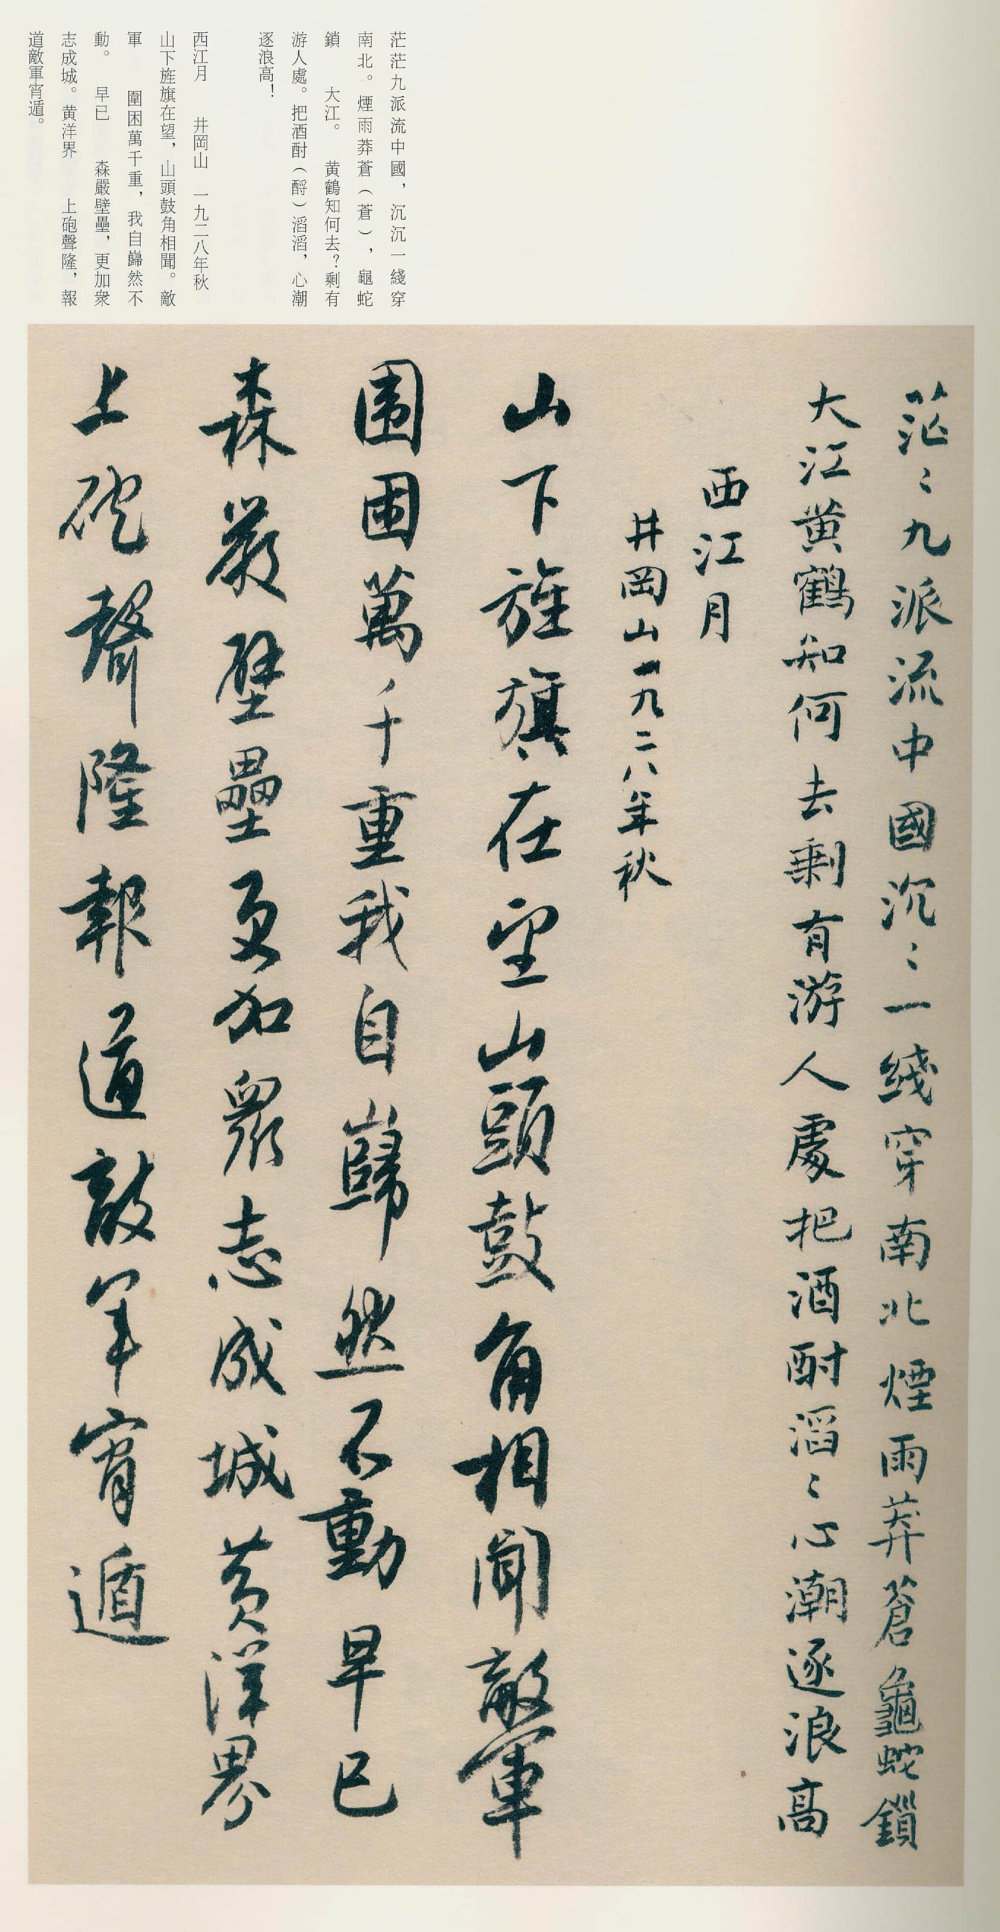 茫茫九派流中國，沉沉一綫穿
南北。煙雨莽蒼（蒼），龜蛇
鎖　大江。　黄鶴知何去？剩有
游人處。把酒酎（酹）滔滔，心潮
逐浪高！
西江月　井岡山　一九二八年秋
山下旌旗在望，山頭鼓角相聞。敵
軍　圍困萬千重，我自巋然不
動。　早已　森嚴壁壘，更加衆
志成城。黄洋界　上砲聲隆，報
道敵軍宵遁。
茫〻九派流中國沉〻一綫穿南北煙雨莽蒼龜蛇鎖
大江黄鶴知何去剩有游人處把酒酎滔〻心潮逐浪高
西江月
井岡山一九二八年秋
山下旌旗在望山頭鼓角相聞敵軍
围困萬千重我自巋然不動早已
森嚴壁壘更加衆志成城黄洋界
上砲聲隆報道敵軍宵遁